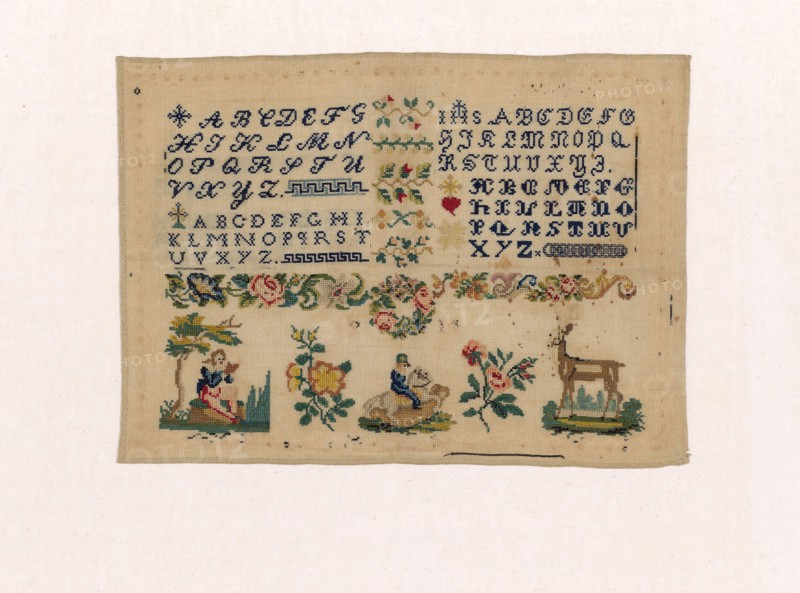 A B C D E F G
H I K L M N
O P Q R S T U
V X Y Z.
A B C D E F G H I
K L M N O P q R S T
U V X Y Z.
I h s A B C D E F G
H J K L M N O P Q
R S T U V X Y Z.
A B C D E F G
H I K L M N O
P Q R S T U V
X Y Z x
PHOTO12